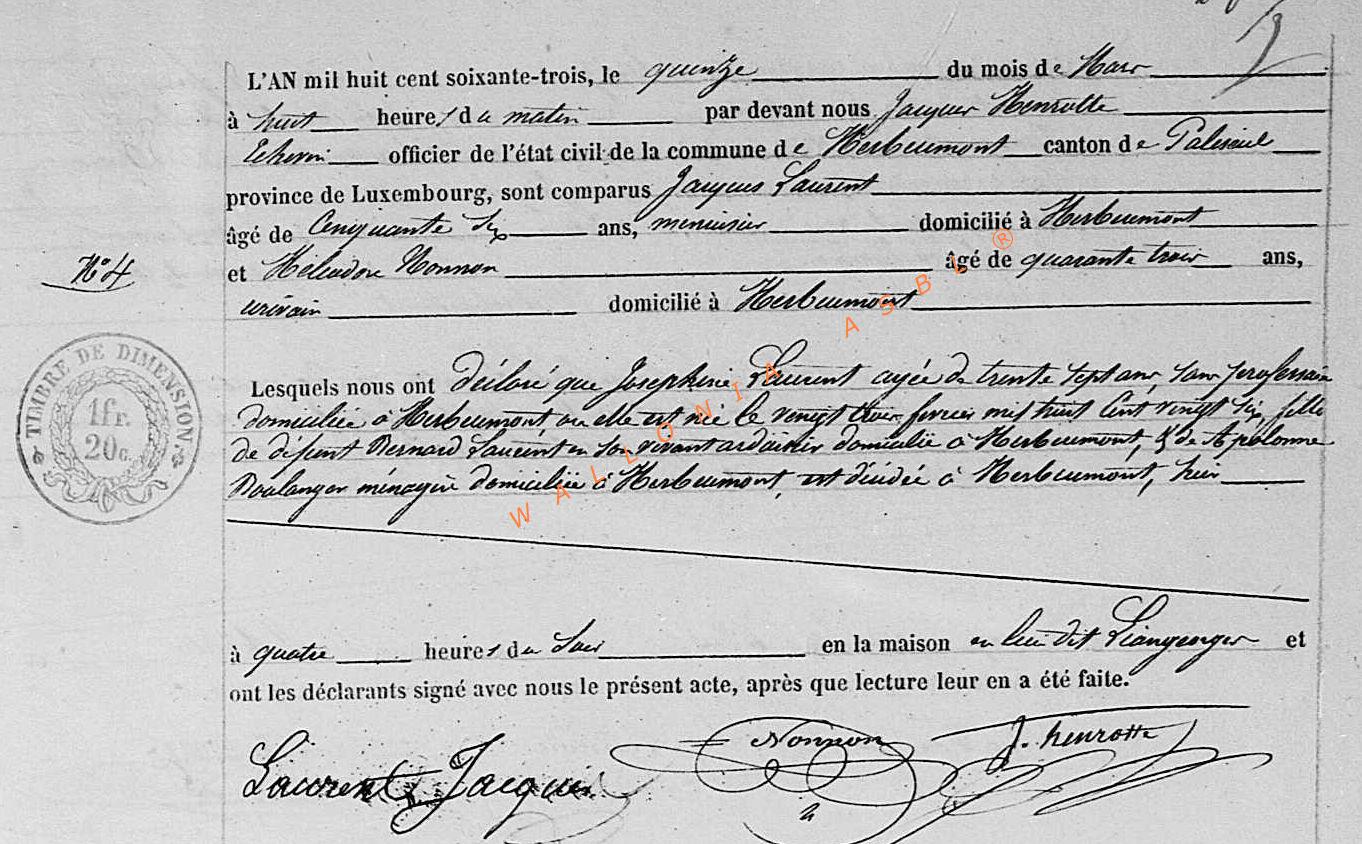 L'AN mil huit cent soixante-trois, le quinze du mois de Mars
à huit heures du matin par devant nous Jacques Henrotte
Echevin officier de l'état civil de la commune de Herbeumont canton de Paliseul
province de Luxembourg, sont comparus Jacques Laurent
âgé de Cinquante Six ans, menuisier domicilié à Herbeumont
et Héliodore Nonnon âgé de quarante trois ans,
N° 4
écrivain domicilié à Herbeumont
Lesquels nous ont déclaré que Josephine Laurent agée de trente sept ans, sans profession
domiciliée à Herbeumont où elle est née le vingt trois fevrier mil huit Cent vingt six, fille
de défunt Bernard Laurent en son vivant ardoisier domicilié à Herbeumont, & de Apolonne
Boulanger ménagère domiciliée à Herbeumont, est décédée à Herbeumont, hier
à quatre heures du Soir en la maison au lieu dit et
ont les déclarants signé avec nous le présent acte, après que lecture leur en a été faite.
Laurent Jacques Nonnon J. henrotte
TIMBRE DE DIMENSION
1fr.
20c.
WALLONIA ASBL ®